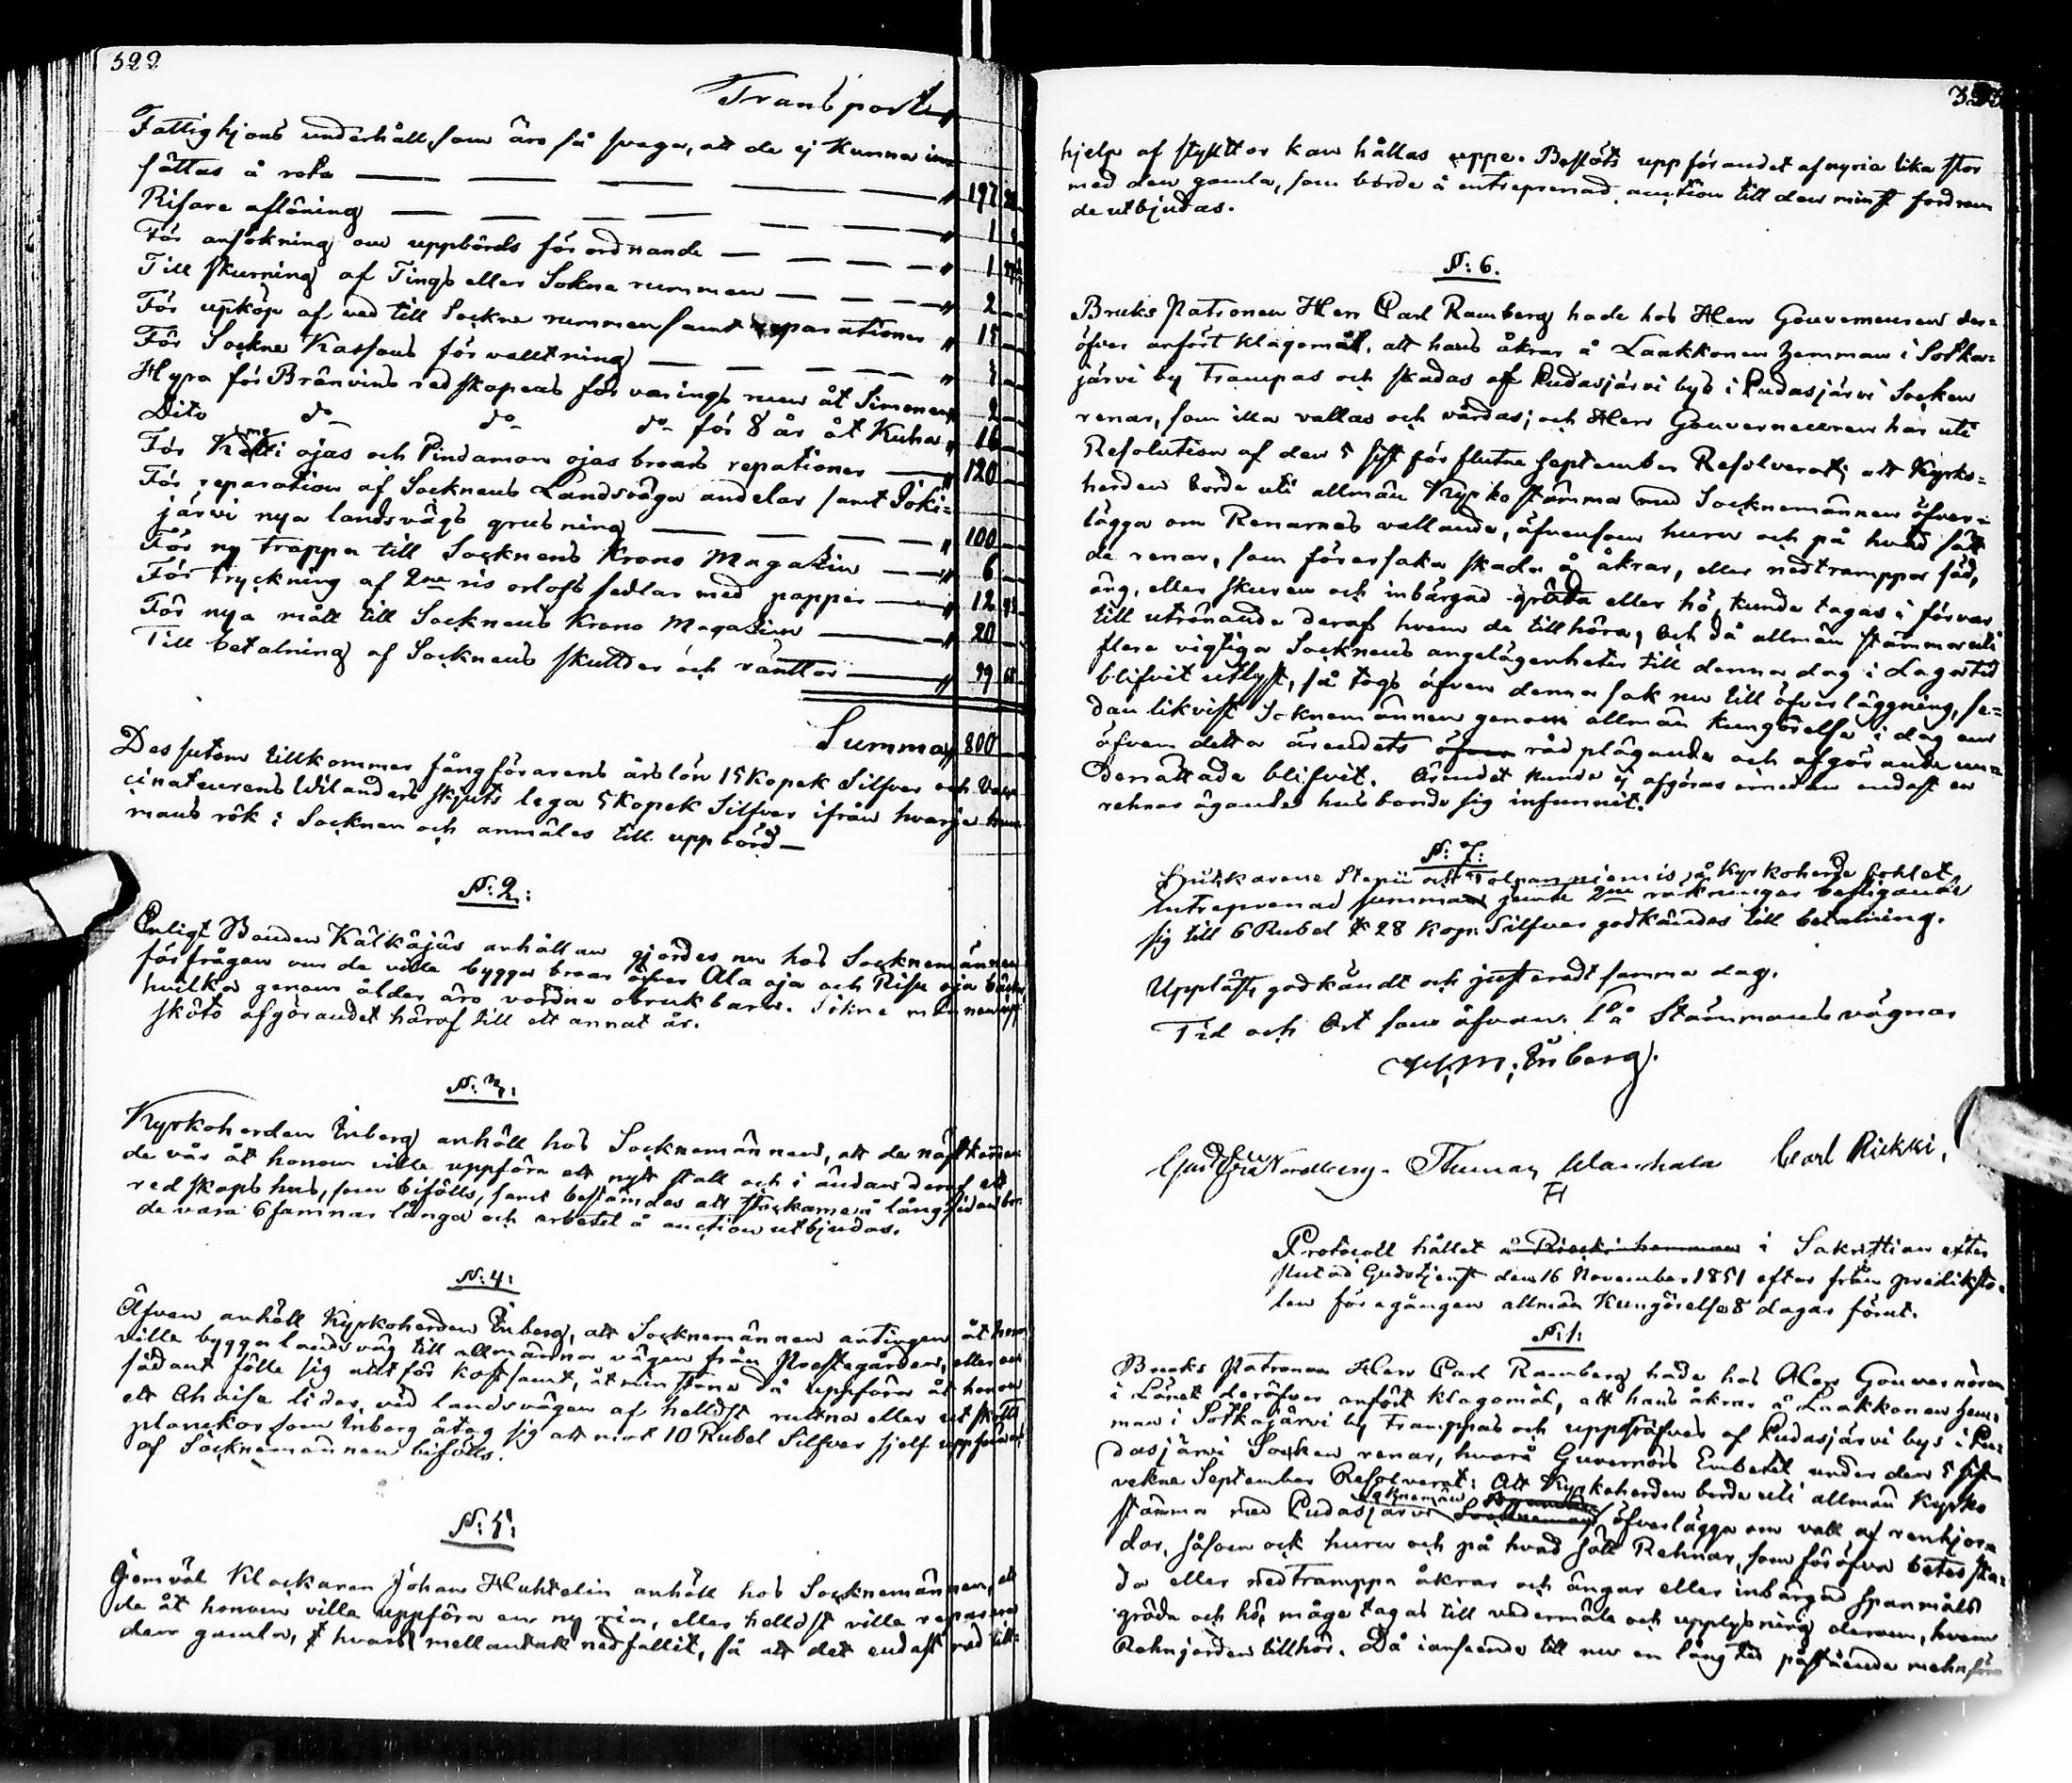 522
Transport
Fattighjons underhåll, som äro så svaga, att de ej kunna in
sättas å rota — — — — — " 197
Risare aflöning — — — — — " 1
För ansökning om uppbörds förordnande — — — — " 1
Till skurning af Tings eller Sokne rummen — — — " 2
För upköp af ved till Sockne rummen samt reparationer " 15
För Sockne Kassans förvalltning — — — — "
Hyra för Bränvins redskapens förvarings rum åt Simonen " 2
Dito do do do för 8 år åt Kuha " 16
För ojas och Pindamon ojas broars repationer — " 120
För reparation af Socknens Landsväga andelar samt Joki=
järvi nya landsvägs grusning — — — — " 100
För ny trappa till Socknens Krono Magasin — — " 6
För tryckning af 2ne ris orlofs sedlar med papper — " 12
För nya mått till Socknens Krono Magasin — " 20
Till betalning af Socknens skullder och räntor — " 99
Summa 800
Dessutom tillkommer fångförarens årslön 15 Kopek Silfver och Vac
cinateurens Wilanders skjuts lega 5 Kopek Silfver ifrån hvarje
mans rök i Socknen och anmäles till uppbörd —
N: 2:
Enligt Bonden Kälkäjäs anhållan gjordes nu hos Socknemännen
förfrågan om de ville bygga broar öfver Ala oja och Risu oja
hvilka genom ålder äro vordna obrukbara. Sökne männen upp
sköto afgörandet häraf till ett annat år.
N: 3:
Kyrkoherden Enberg anhöll hos Socknemännen, att de nästkomman
de vår åt honom ville uppföra ett nytt stall och i ändan deraf ett
redskaps hus, som bifölls, samt bestämdes att stockarne å långsidan bör
de vara 6 famnar långa och arbetet å auction utbjudas.
N: 4:
Äfven anhöll Kyrkoherden Enberg, att Socknemännen antingen åt honom
ville bygga landsväg till allmänna vägen från Prestegården, eller om
sådant fölle sig alltför kostsamt, åtminstone då uppföra åt honom
ett Chaise lider, vid landsvägen af helldst rutna eller utskotts
planckor som Enberg åtog sig att mot 10 Rubel Silfver sjelf uppföra
af Socknemännen bifölls.
N: 5:
Jemväl Klockaren Johan Huhtelin anhöll hos Socknemännen, att
de åt honom ville uppföra en ny ria, eller helldst ville reparera
den gamla, hvars mellantak nedfallit, så att det endast med till=
hjelp af styltor kan hållas uppe. Beslöts uppförandet af ny ria lika stor
med den gamla, som borde å entreprenad auction till den minst fordran
de utbjudas.
N: 6.
Bruks Patronen Herr Carl Ramberg hade hos Herr Gouverneuren der=
öfver anfört klagomål, att hans åkrar å Laakkonen hemman i Sotka=
järvi by trampas och skadas af Pudasjärvi bys i Pudasjärvi Socken
renar, som illa vallas och vårdas; och Herr Gouverneuren har uti
Resolution af den 5 sist förflutne September Resolverat, att Kyrko=
herden borde uti allmän Kyrko stämma med Socknemännen öfver=
lägga om Renarnes vallande, äfvensom huru och på hvad sätt
de renar, som förorsaka skada å åkrar, eller nedtrampa säd,
äng, eller skuren och inbärgad gröda eller hö, kunde tagas i förvar
till utrönande deraf hvem de tillhöra; Och då allmän stämma uti
flera vigtiga Socknens angelägenheter till denna dag i Lagatid
blifvit utlyst, så togs äfven denna sak nu till öfverläggning, se=
dan likvist Soknemännen genom allmän kungörelse i dag om
äfven detta ärendets råd plägande och afgörande un=
derrättade blifvit. Ärendet kunde ej afgöras emedan endast en
rehnar ägande husbonde sig infunnit.
N: 7:
och Tolpanniemis, å Kyrkoherde bohlet
entreprenad summa jemte 2ne räkningar bestigande
sig till 6 Rubel 28 Kop. Silfver godkändes till betalning.
Uppläst, godkändt och justeradt samma dag.
Tid och Ort som äfvan. På Stämmans vägnar
Enberg.
Nordberg. Thomas Carl Riekki,
Protocoll hållet å i Sakristian efter
slutad Gudstjenst den 16 November 1851 efter från prediksto=
len föregången allmän Kungörelse 8 dagar förut.
N: 1:
Bruks Patronen Herr Carl Ramberg hade hos Herr Gouvernören
i Länet deröfver anfört klagomål, att hans åkrar å Laakkonen hem=
man i Sotkajärvi by trampas och uppäfves af Pudasjärvi bys i Pu=
dasjärvi Socken renar, hvarå Guvernörs Embetet under den 5 sist
vekne September Resolverat: Att Kyrkoherden borde uti allmän Kyrko
stämma med Pudasjärvi Soknemän öfverlägga om vall af renhjor=
dar, såsom ock huru och på hvad sätt Rehnar, som föröfva betes ska=
da eller nedtrampa åkrar och ängar eller inbärgad spanmåls
gröda och hö, måge tagas till vedermäle och upplysning derom, hvem
Rehnjorden tillhör. Då i anseende till nu en lång tid påstående